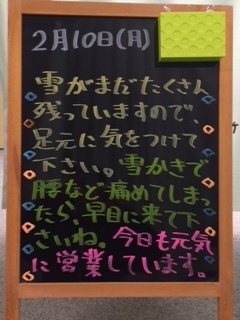 2月10日(月)
雪がまだたくさん
残っていますので、
足元に気をつけて
下さい。雪かきで
腰など痛めてしまっ
たら、早目に来て下
さいね。今日も元気
に営業しています。